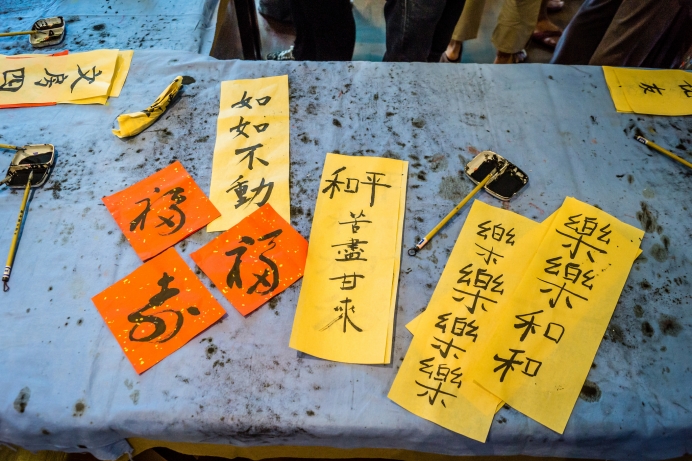 文房四
如如不動
福
福
寿
和平
苦盡甘來
樂樂樂樂
樂樂和和
友